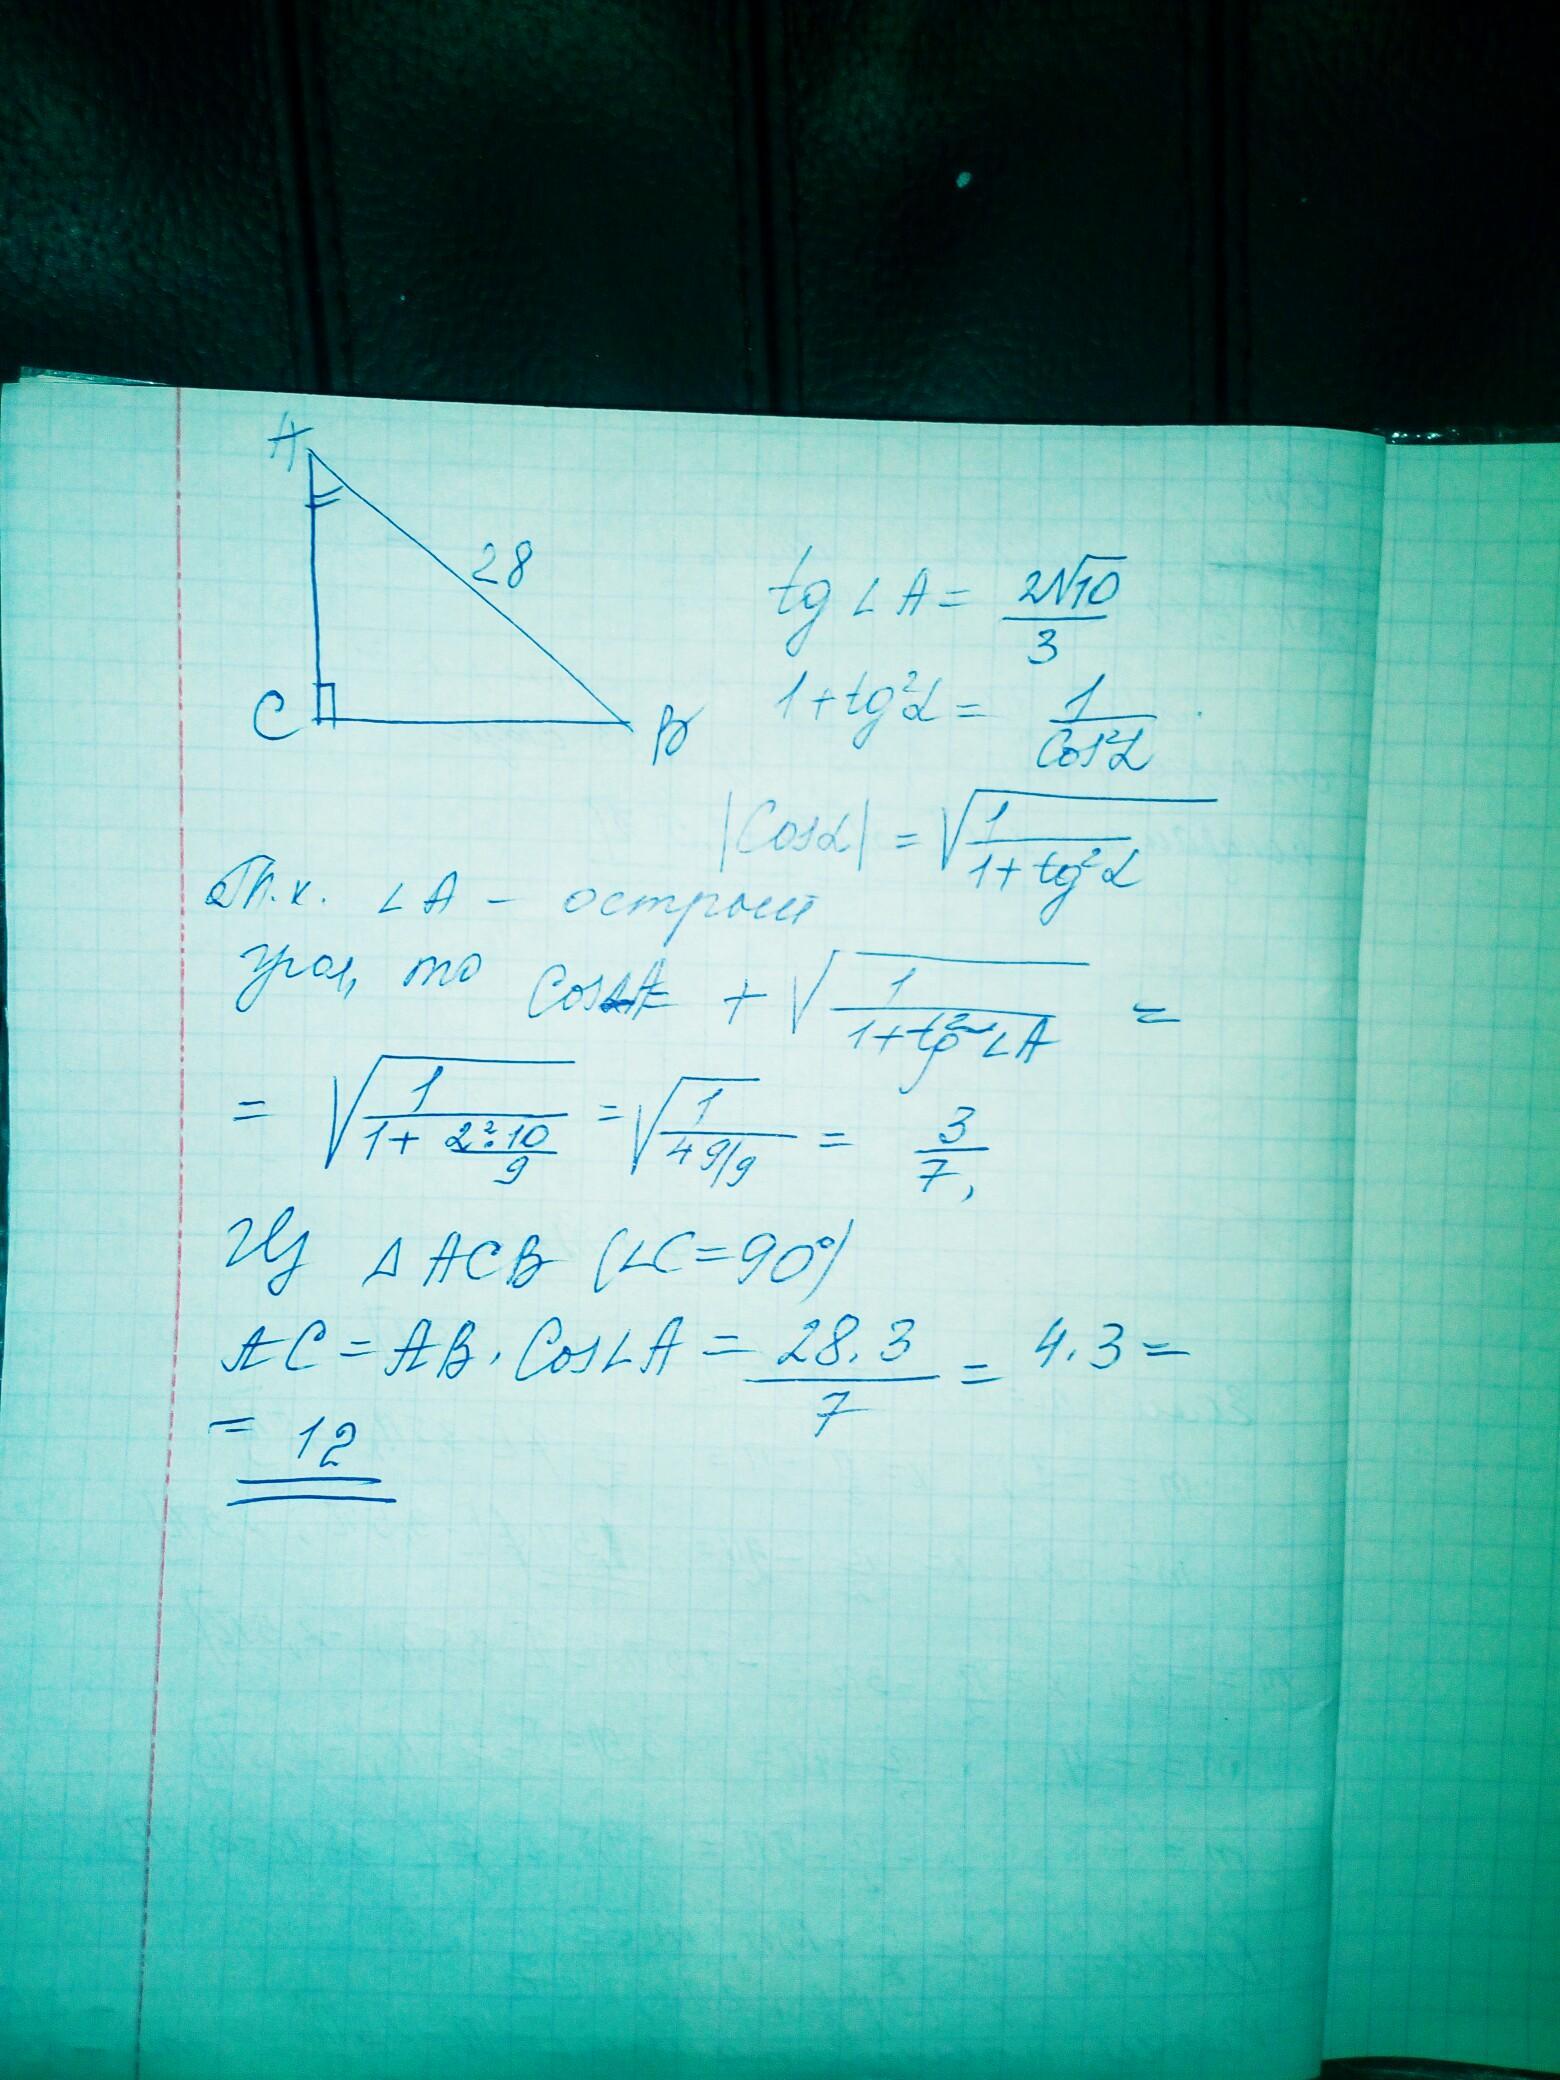 A
28
C
B
tg ∠A = 2√10/3
1+tg²α = 1/cos²α
|Cosα| = √(1/(1+tg²α))
Т.к. ∠A – острый
угол, то Cos∠A = + √(1/(1+tg²∠A)) =
= √(1/(1+ 2²·10/9)) = √(1/(49/9)) = 3/7,
Из Δ ACB (∠C=90°)
AC = AB · Cos∠A = 28·3/7 = 4·3 =
= 12